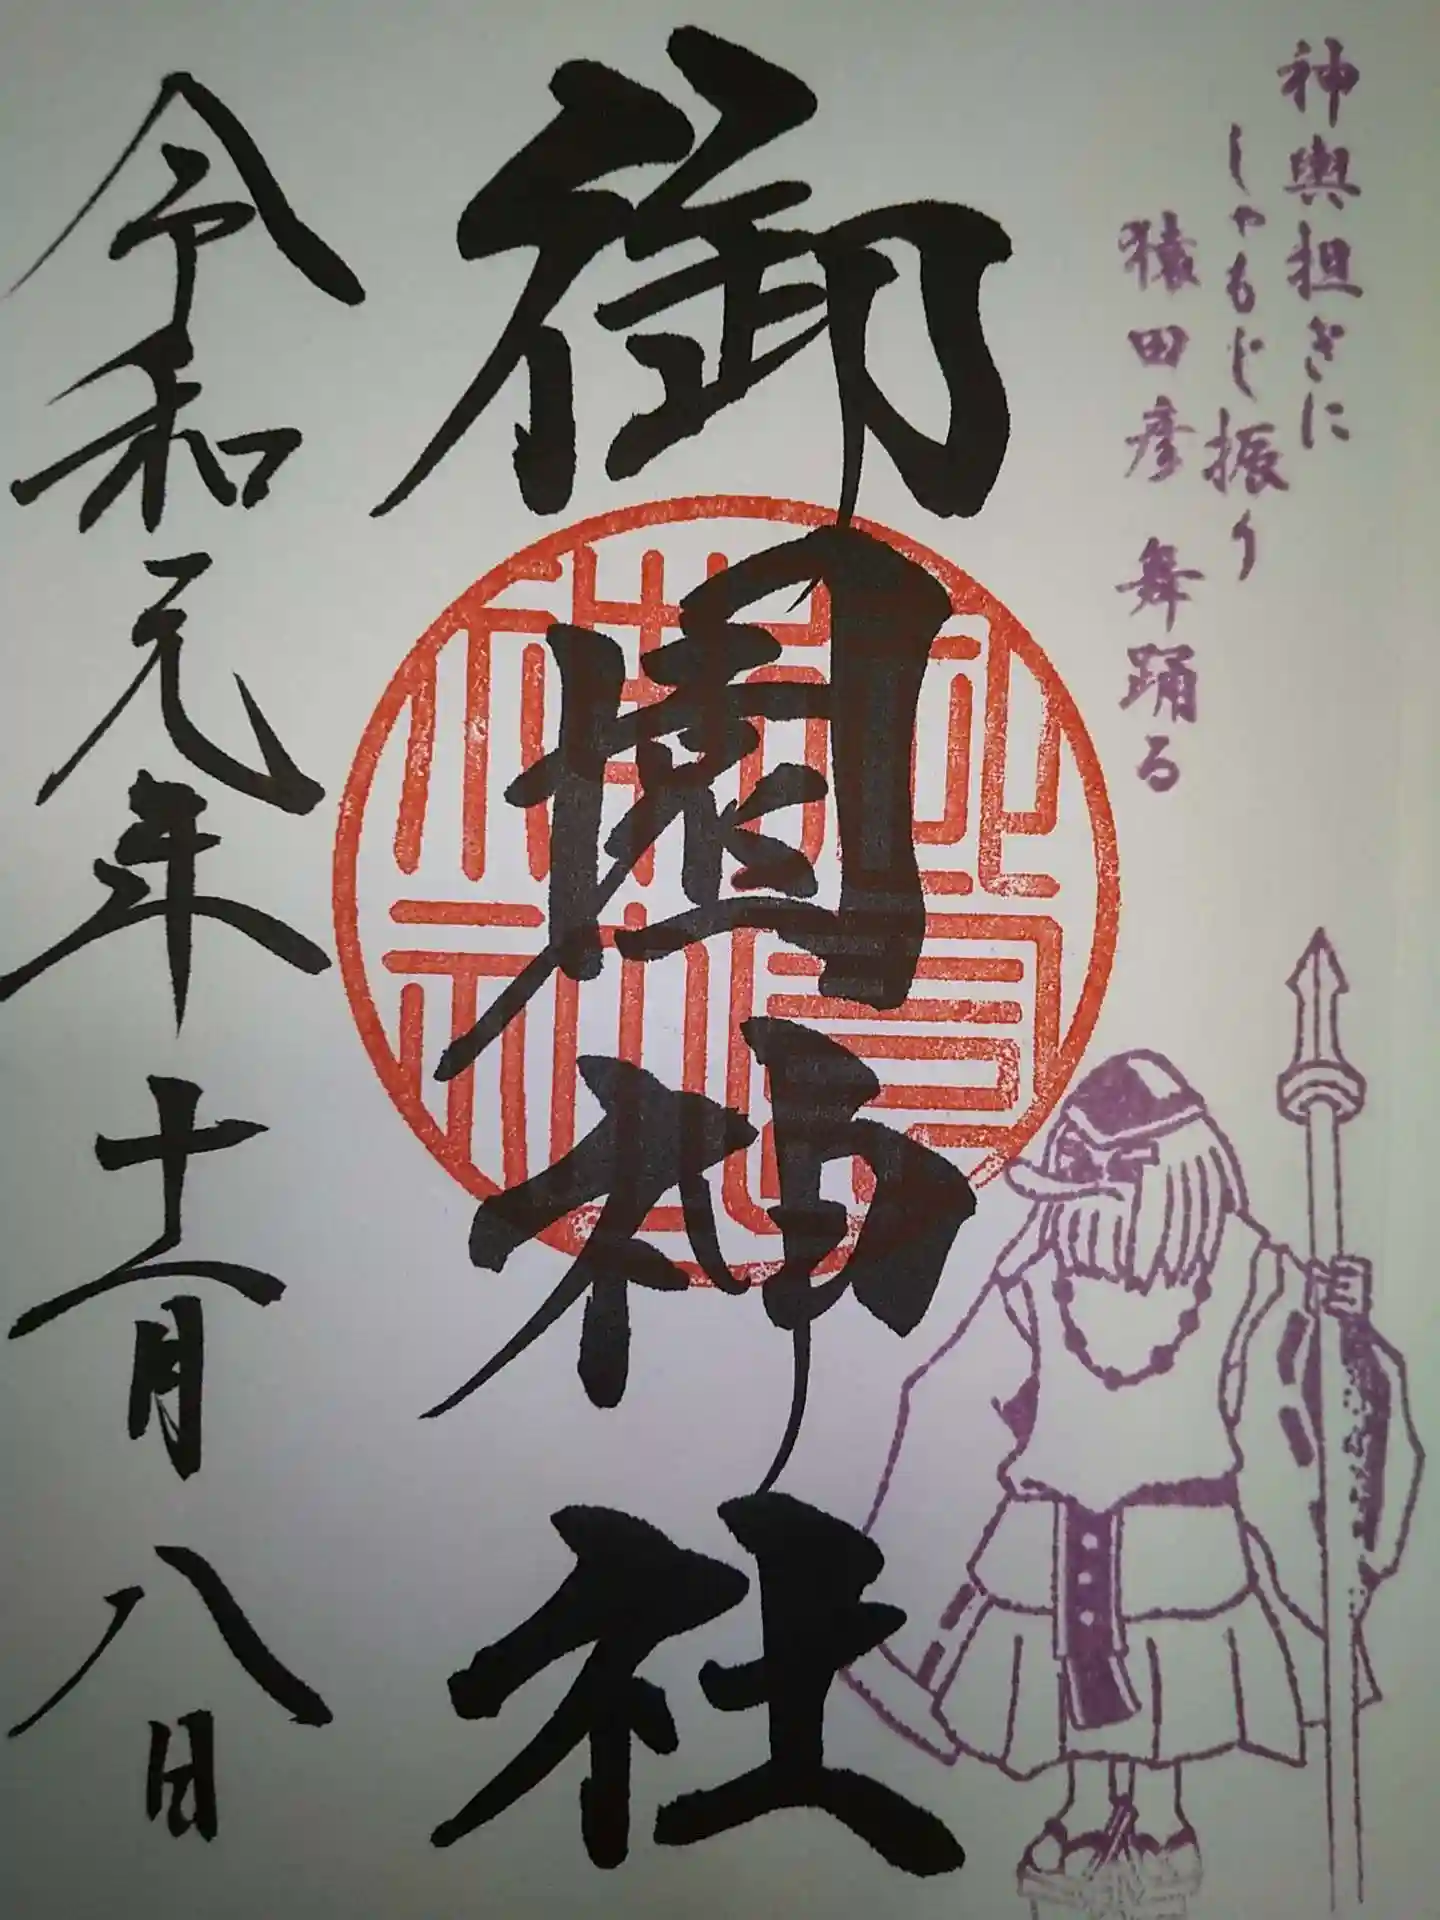 神輿担ぎに
しゃもじ振り
猿田彦 舞踊る
御園神社
令和元年十二月八日